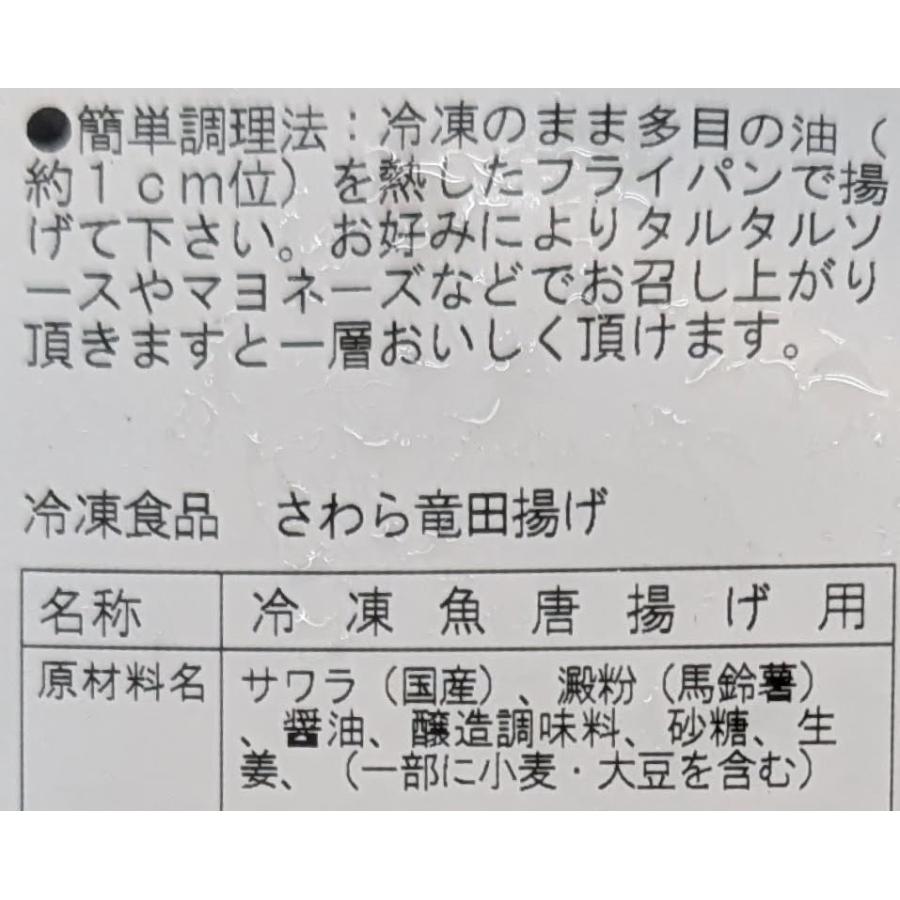 ●簡単調理法：冷凍のまま多目の油（
約１ｃｍ位）を熱したフライパンで揚
げて下さい。お好みによりタルタルソ
ースやマヨネーズなどでお召し上がり
頂きますと一層おいしく頂けます。
冷凍食品　さわら竜田揚げ
名称　冷凍魚唐揚げ用
原材料名　サワラ（国産）、澱粉（馬鈴薯）
、醤油、醸造調味料、砂糖、生
姜、（一部に小麦・大豆を含む）